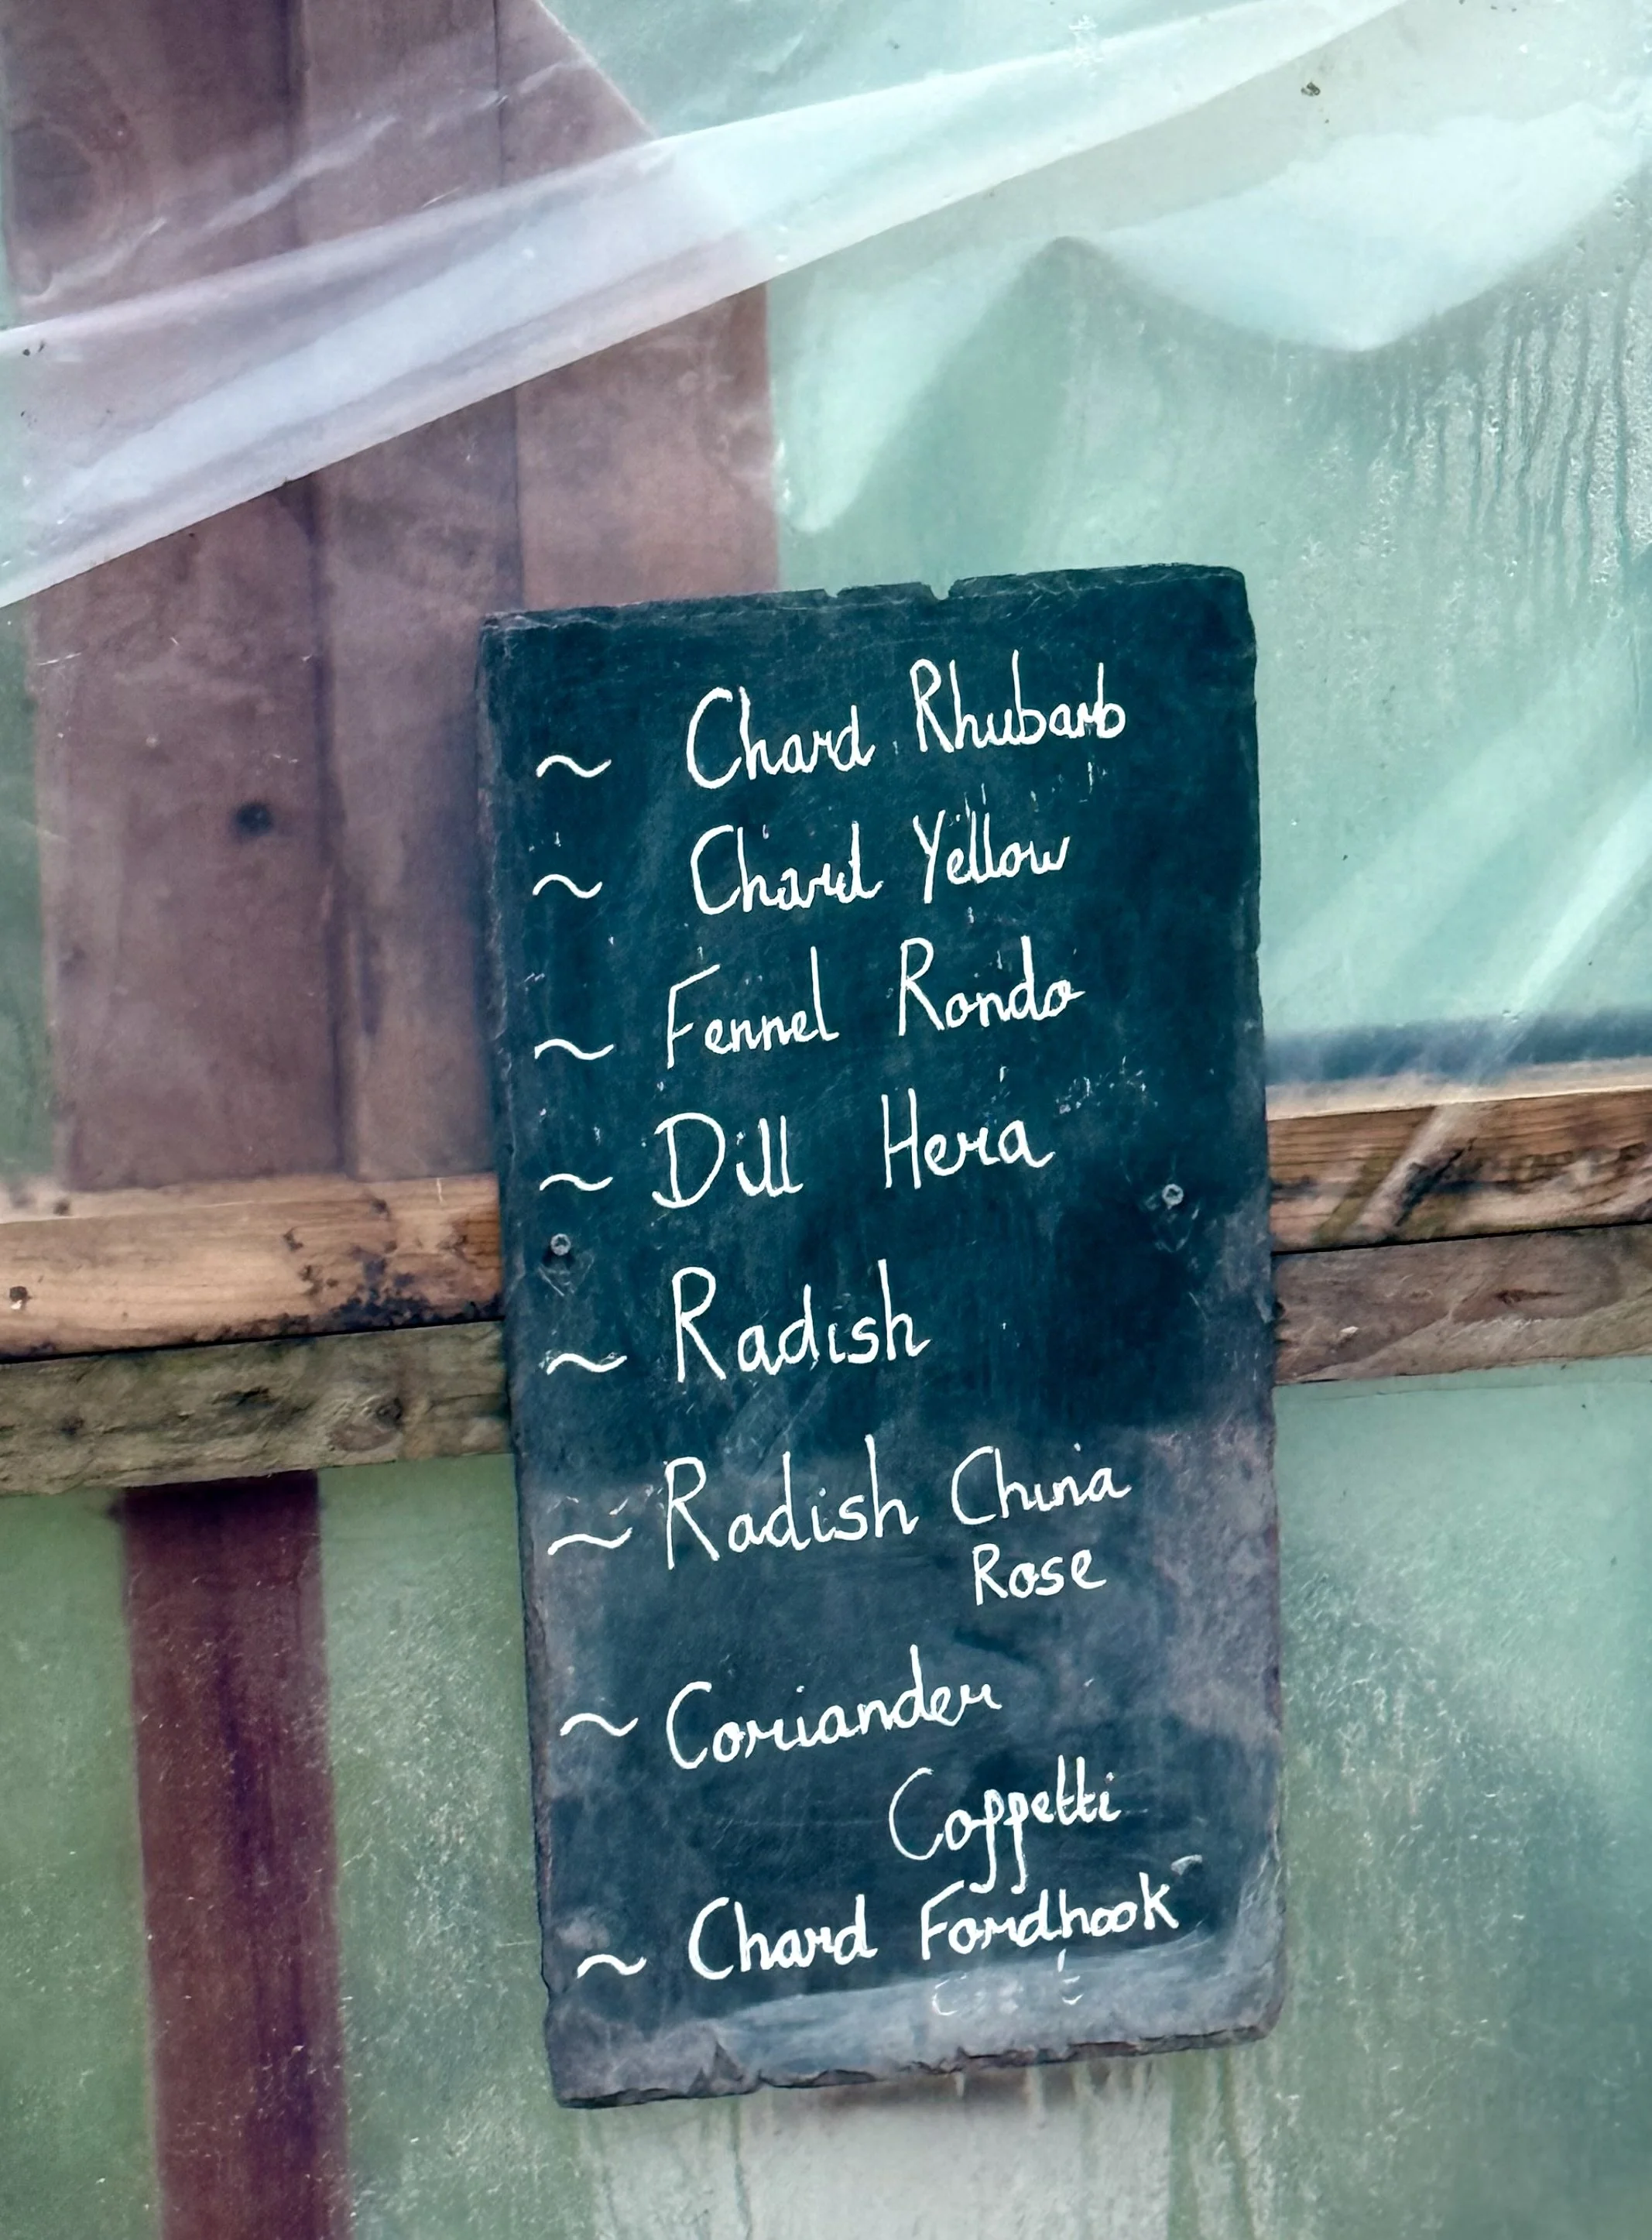 ~ Chard Rhubarb
~ Chard Yellow
~ Fennel Rondo
~ Dill Hera
~ Radish
~ Radish China
Rose
~ Coriander
Coppetti
~ Chard Fordhook